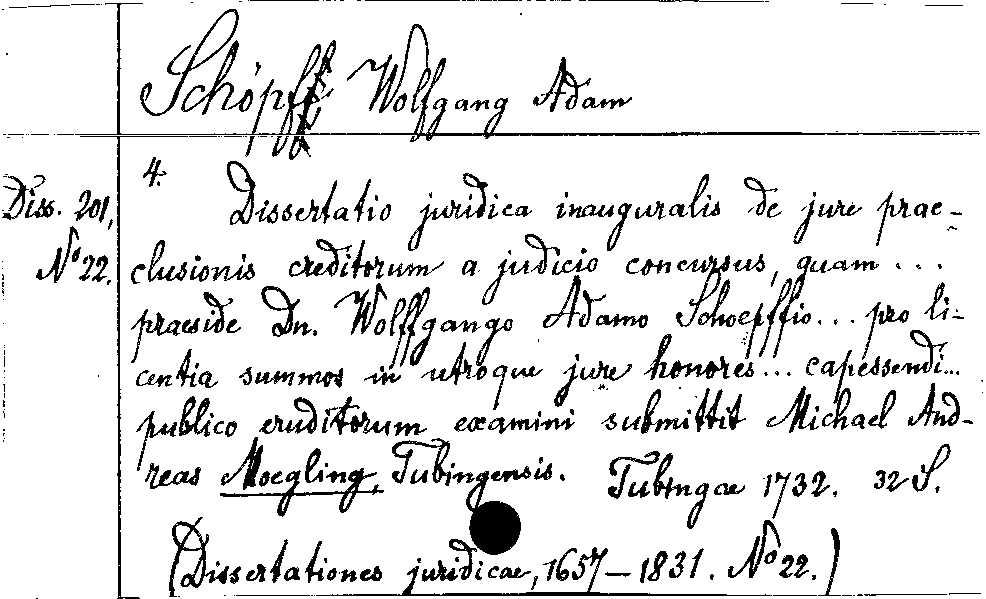 Schöpff, Wolfgang Adam
4.
Diss. 201,
Nº 22.
Dissertatio juridica inauguralis de jure prae-
clusionis creditorum a judicio concursus, quam ...
praeside Dn. Wolffgango Adamo Schoepffio ... pro li-
centia summos in utroque jure honores ... capessendi ...
publico eruditorum examini submittit Michael And-
reas Moegling, Tubingensis. Tubingae 1732. 32 S.
(Dissertationes juridicae, 1657–1831. Nº 22.)